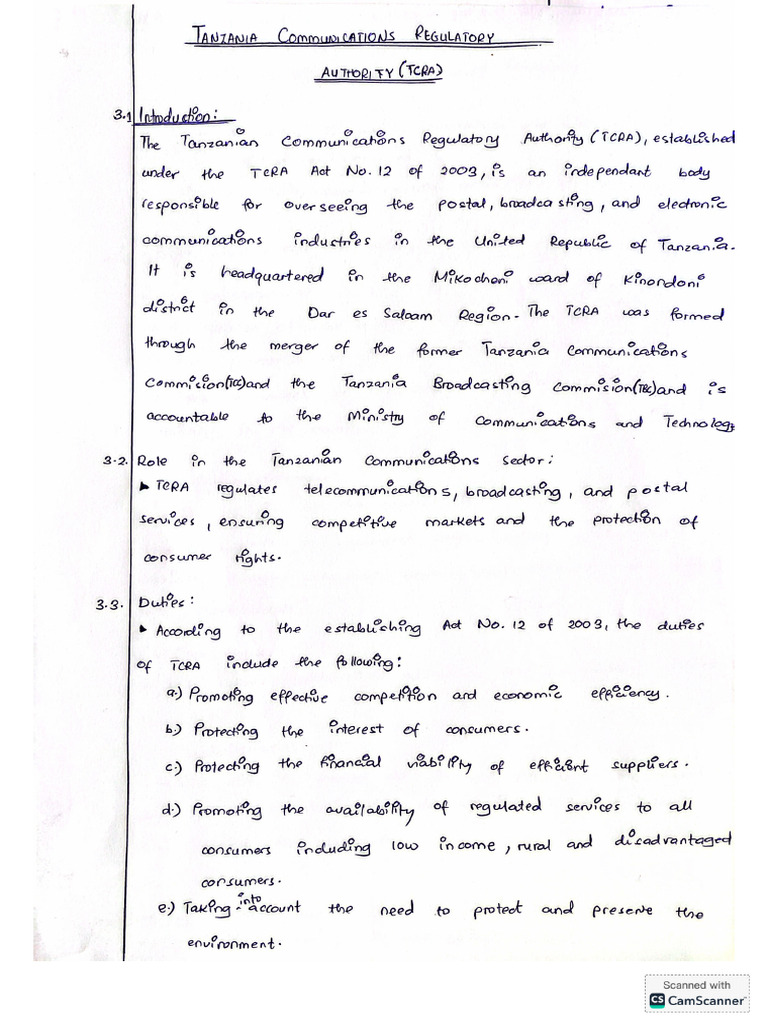 TANZANIA COMMUNICATIONS REGULATORY
AUTHORITY (TCRA)
3.1 Introduction:
The Tanzanian Communications Regulatory Authority (TCRA), established
under the TCRA Act No. 12 of 2003, is an independant body
responsible for overseeing the postal, broadcasting, and electronic
communications industries in the United Republic of Tanzania.
It is headquartered in the Mikocheni ward of Kinondoni
district in the Dar es Salaam Region. The TCRA was formed
through the merger of the former Tanzania Communications
Commision(TCC)and the Tanzania Broadcasting Commision(TBC)and is
accountable to the Ministry of Communications and Technology
3.2. Role in the Tanzanian Communications sector:
▸ TCRA regulates telecommunications, broadcasting, and postal
services, ensuring competitive markets and the protection of
consumer rights.
3.3. Duties:
▸ According to the establishing Act No. 12 of 2003, the duties
of TCRA include the following:
a.) Promoting effective competition and economic efficiency.
b.) Protecting the interest of consumers.
c.) Protecting the financial viability of efficient suppliers.
d.) Promoting the availability of regulated services to all
consumers including low income, rural and disadvantaged
consumers.
e.) Taking into account the need to protect and preserve the
environment.
Scanned with
CS CamScanner